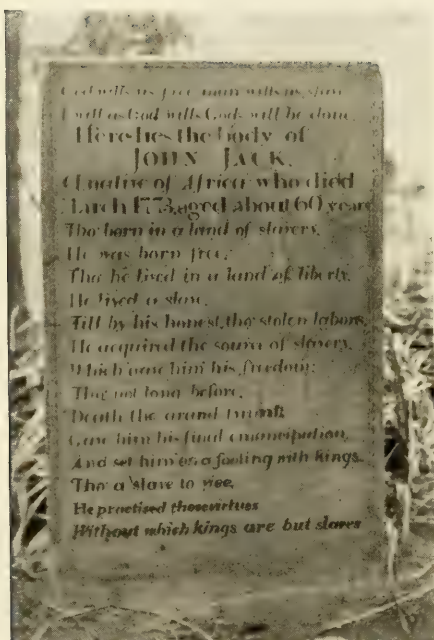 God wills us free, man wills us slaves
I will as God wills Gods will be done.
Here lies the body of
JOHN JACK.
A native of Africa who died
March 1773, aged about 60 years
Tho born in a land of slavery,
He was born free.
Tho he lived in a land of liberty,
He lived a slave.
Till by his honest, tho stolen labors,
He acquired the source of slavery,
Which gave him his freedom;
Tho not long before,
Death the grand tyrant
Gave him his final emancipation,
And set him on a footing with kings.
Tho a slave to vice,
He practised those virtues
Without which kings are but slaves